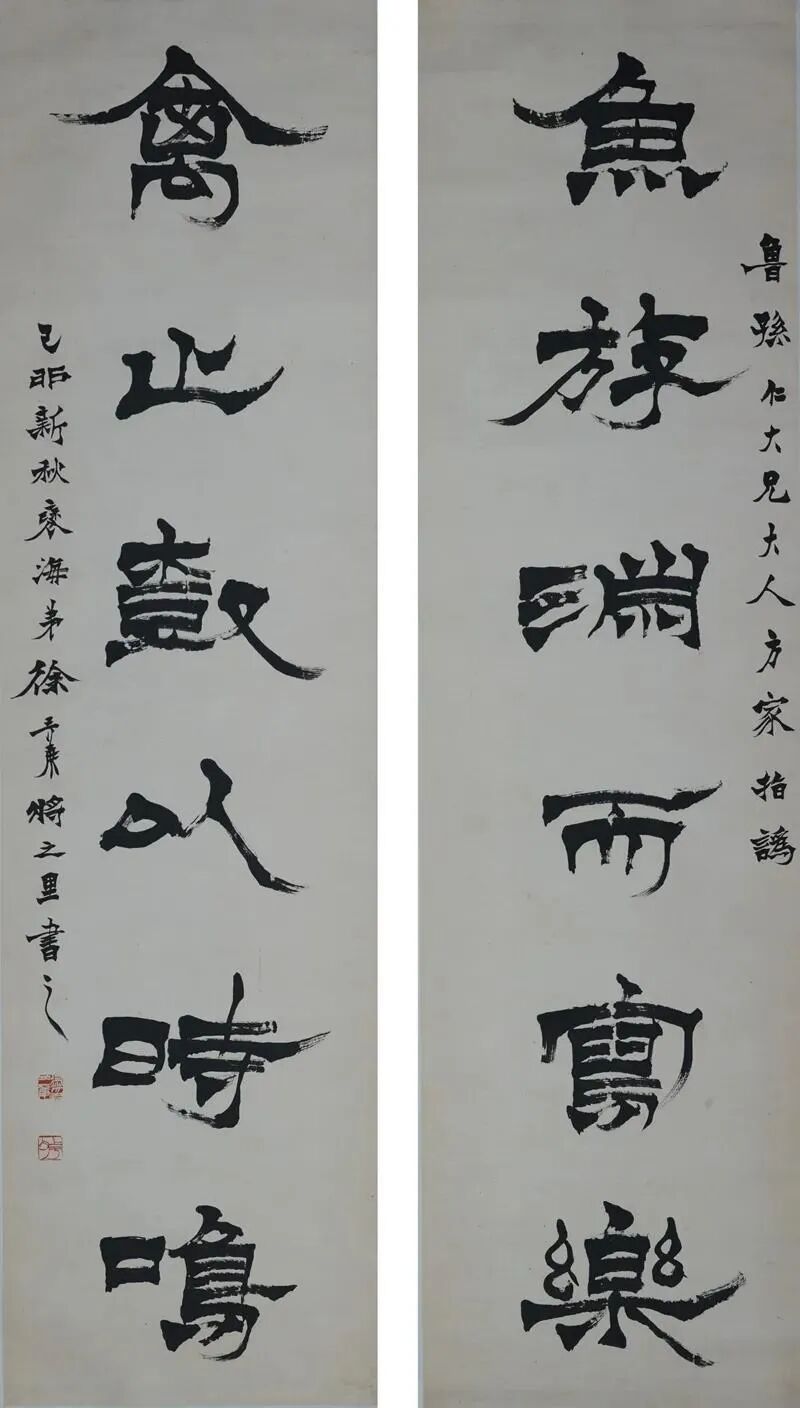 魚斿淵而寫樂
魯孫仁大兄大人方家指譌
禽止樹以時鳴
己卯新秋褎海弟徐三庚將之里書之